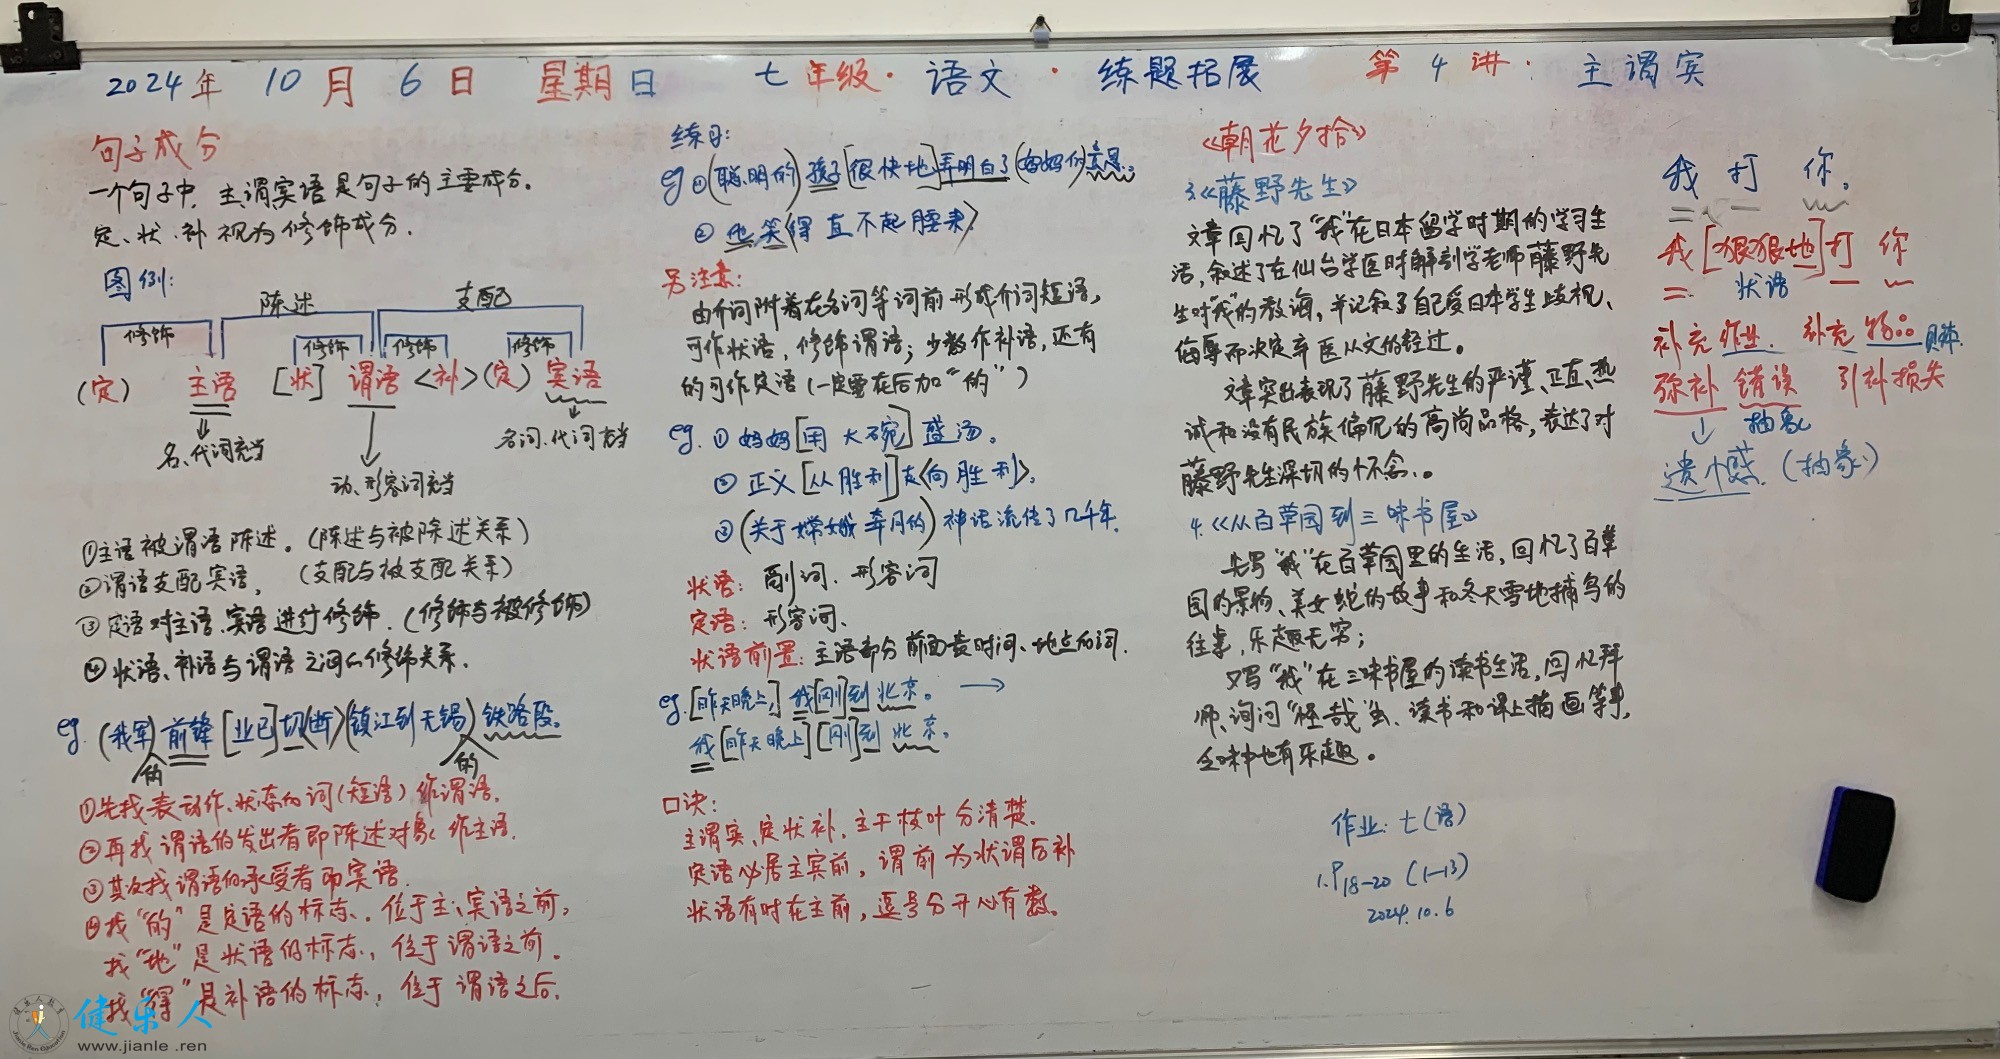 2024年 10月 6日 星期日 七年级·语文·练题拓展 第4讲: 主谓宾
句子成分
一个句子中, 主谓宾语是句子的主要成分。
定、状、补视为修饰成分.
图例:
陈述 支配
修饰 修饰 修饰 修饰
(定) 主语 [状] 谓语 <补> (定) 宾语
名、代词充当
动、形容词充当
名词、代词充当
①主语被谓语陈述。(陈述与被陈述关系)
②谓语支配宾语, (支配与被支配关系)
③定语对主语、宾语进行修饰.(修饰与被修饰)
④状语、补语与谓语之间的修饰关系.
eg. (我军)前锋[业已]切<断>(镇江到无锡)铁路段。
的 的
①先找表动作、状态的词(短语)作谓语.
②再找谓语的发出者即陈述对象作主语.
③其次找谓语的承受者即宾语.
④找“的”是定语的标志. 位于主、宾语之前,
找“地”是状语的标志, 位于谓语之前.
找“得”是补语的标志, 位于谓语之后.
练习:
eg ①(聪明的)孩子[很快地]弄明白了(妈妈的)意思。
②他笑<得直不起腰来>
另注意:
由介词附着在名词等词前形成介词短语,
可作状语, 修饰谓语; 少数作补语, 还有
的可作定语(一定要在后加“的”)
eg. ①妈妈[用大碗]盛汤。
②正义[从胜利]走<向胜利>.
③(关于嫦娥奔月的)神话流传了几千年.
状语: 副词、形容词
定语: 形容词.
状语前置: 主语部分前面表时间、地点的词.
eg.[昨天晚上,]我[刚]到北京。 →
我[昨天晚上][刚]到北京。
口诀:
主谓宾、定状补, 主干枝叶分清楚.
定语必居主宾前, 谓前为状谓后补
状语有时在主前, 逗号分开心有数。
《朝花夕拾》
3《藤野先生》
文章回忆了“我”在日本留学时期的学习生
活,叙述了在仙台学医时解剖学老师藤野先
生对“我”的教诲,并记叙了自己受日本学生歧视、
侮辱而决定弃医从文的经过。
文章突出表现了藤野先生的严谨、正直、热
诚和没有民族偏见的高尚品格,表达了对
藤野先生深切的怀念。
4.《从百草园到三味书屋》
先写“我”在百草园里的生活,回忆了百草
园的景物、美女蛇的故事和冬天雪地捕鸟的
往事,乐趣无穷;
又写“我”在三味书屋的读书生活,回忆拜
师、询问“怪哉”虫、读书和课上描画等事,
乏味中也有乐趣。
作业: 七(语)
1.P18-20 (1-13)
2024.10.6
我 打 你。
我[狠狠地]打 你
状语
补充作业. 补充物品 具体.
弥补 错误 引补损失
抽象
遗憾. (抽象)
健乐人
www.jianle .ren